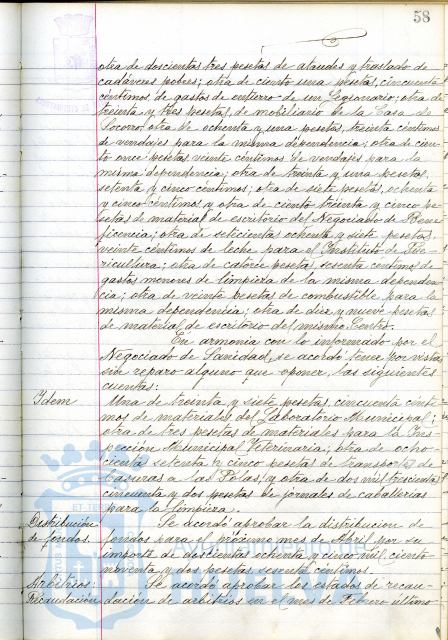 58
otra de doscientas tres pesetas de ataudes y traslado de
cadáveres pobres; otra de ciento una pesetas, cincuenta
centimos de gastos de entierro de un Legionario; otra de
treinta y tres pesetas, de mobiliario de la Casa de
Socorro; otra de ochenta y una pesetas, treinta centimos
de vendajes para la misma dependencia; otra de cien-
to once pesetas veinte centimos de vendajes para la
misma dependencia; otra de treinta y una pesetas,
setenta y cinco centimos; otra de siete pesetas, ochenta
y cinco centimos y otra de ciento treinta y cinco pe-
setas de material de escritorio del Negociado de Bene-
ficencia; otra de setecientas ochenta y siete pesetas
veinte centimos de leche para el Instituto de Pue-
ricultura; otra de catorce pesetas, sesenta centimos de
gastos menores de limpieza de la misma dependen-
cia; otra de veinte pesetas de combustible para la
misma dependencia; otra de diez y nueve pesetas
de material de escritorio del mismo Centro.
En armonia con lo informado por el
Negociado de Sanidad, se acordó tener por vistas
sin reparo alguno que oponer, las siguientes
cuentas:
Idem Una de treinta y siete pesetas, cincuenta centi-
mos de materiales del Laboratorio Municipal;
otra de tres pesetas de materiales para la Ins-
pección Municipal Veterinaria; otra de ocho-
cientas setenta y cinco pesetas de transportes de
basuras a las Polas, y otra de dos mil trescientas
cincuenta y dos pesetas de jornales de caballerias
para la limpieza.
Distribución Se acordó aprobar la distribución de
de fondos. fondos para el próximo mes de Abril por su
importe de doscientas ochenta y cinco mil ciento
noventa y dos pesetas sesenta centimos.
Arbitrios: Se acordó aprobar los estados de recau-
Recaudación dación de arbitrios en el mes de Febrero último